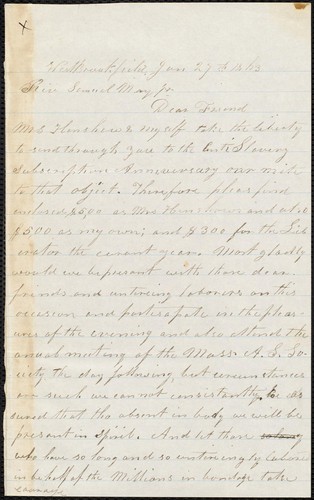 x
West Brookfield, Jan. 27th 1863
Rev. Samuel May Jr.
Dear Friend
Mrs Henshaw & myself take the liberty
to send through you to the Anti Slavery
Subscription Anniversary our mite
to that object. Therefore please find
enclosed $500 as Mrs Henshaws and also
$500 as my own; and $300 for the Lib-
erator the current year. Most gladly
would we be present with those dear
friends and untiering laborers on this
occasion and participate in the pleas-
ures of the evening and also attend the
annual meeting of the Mass. A. S. So-
ciety the day following, but circumstances
are such we can not consistantly, be as-
sured that tho absent in body we will be
present in Spirit. And let those
who have so long and so untieringly labored
in behalf of the Millions in bondage take
courage